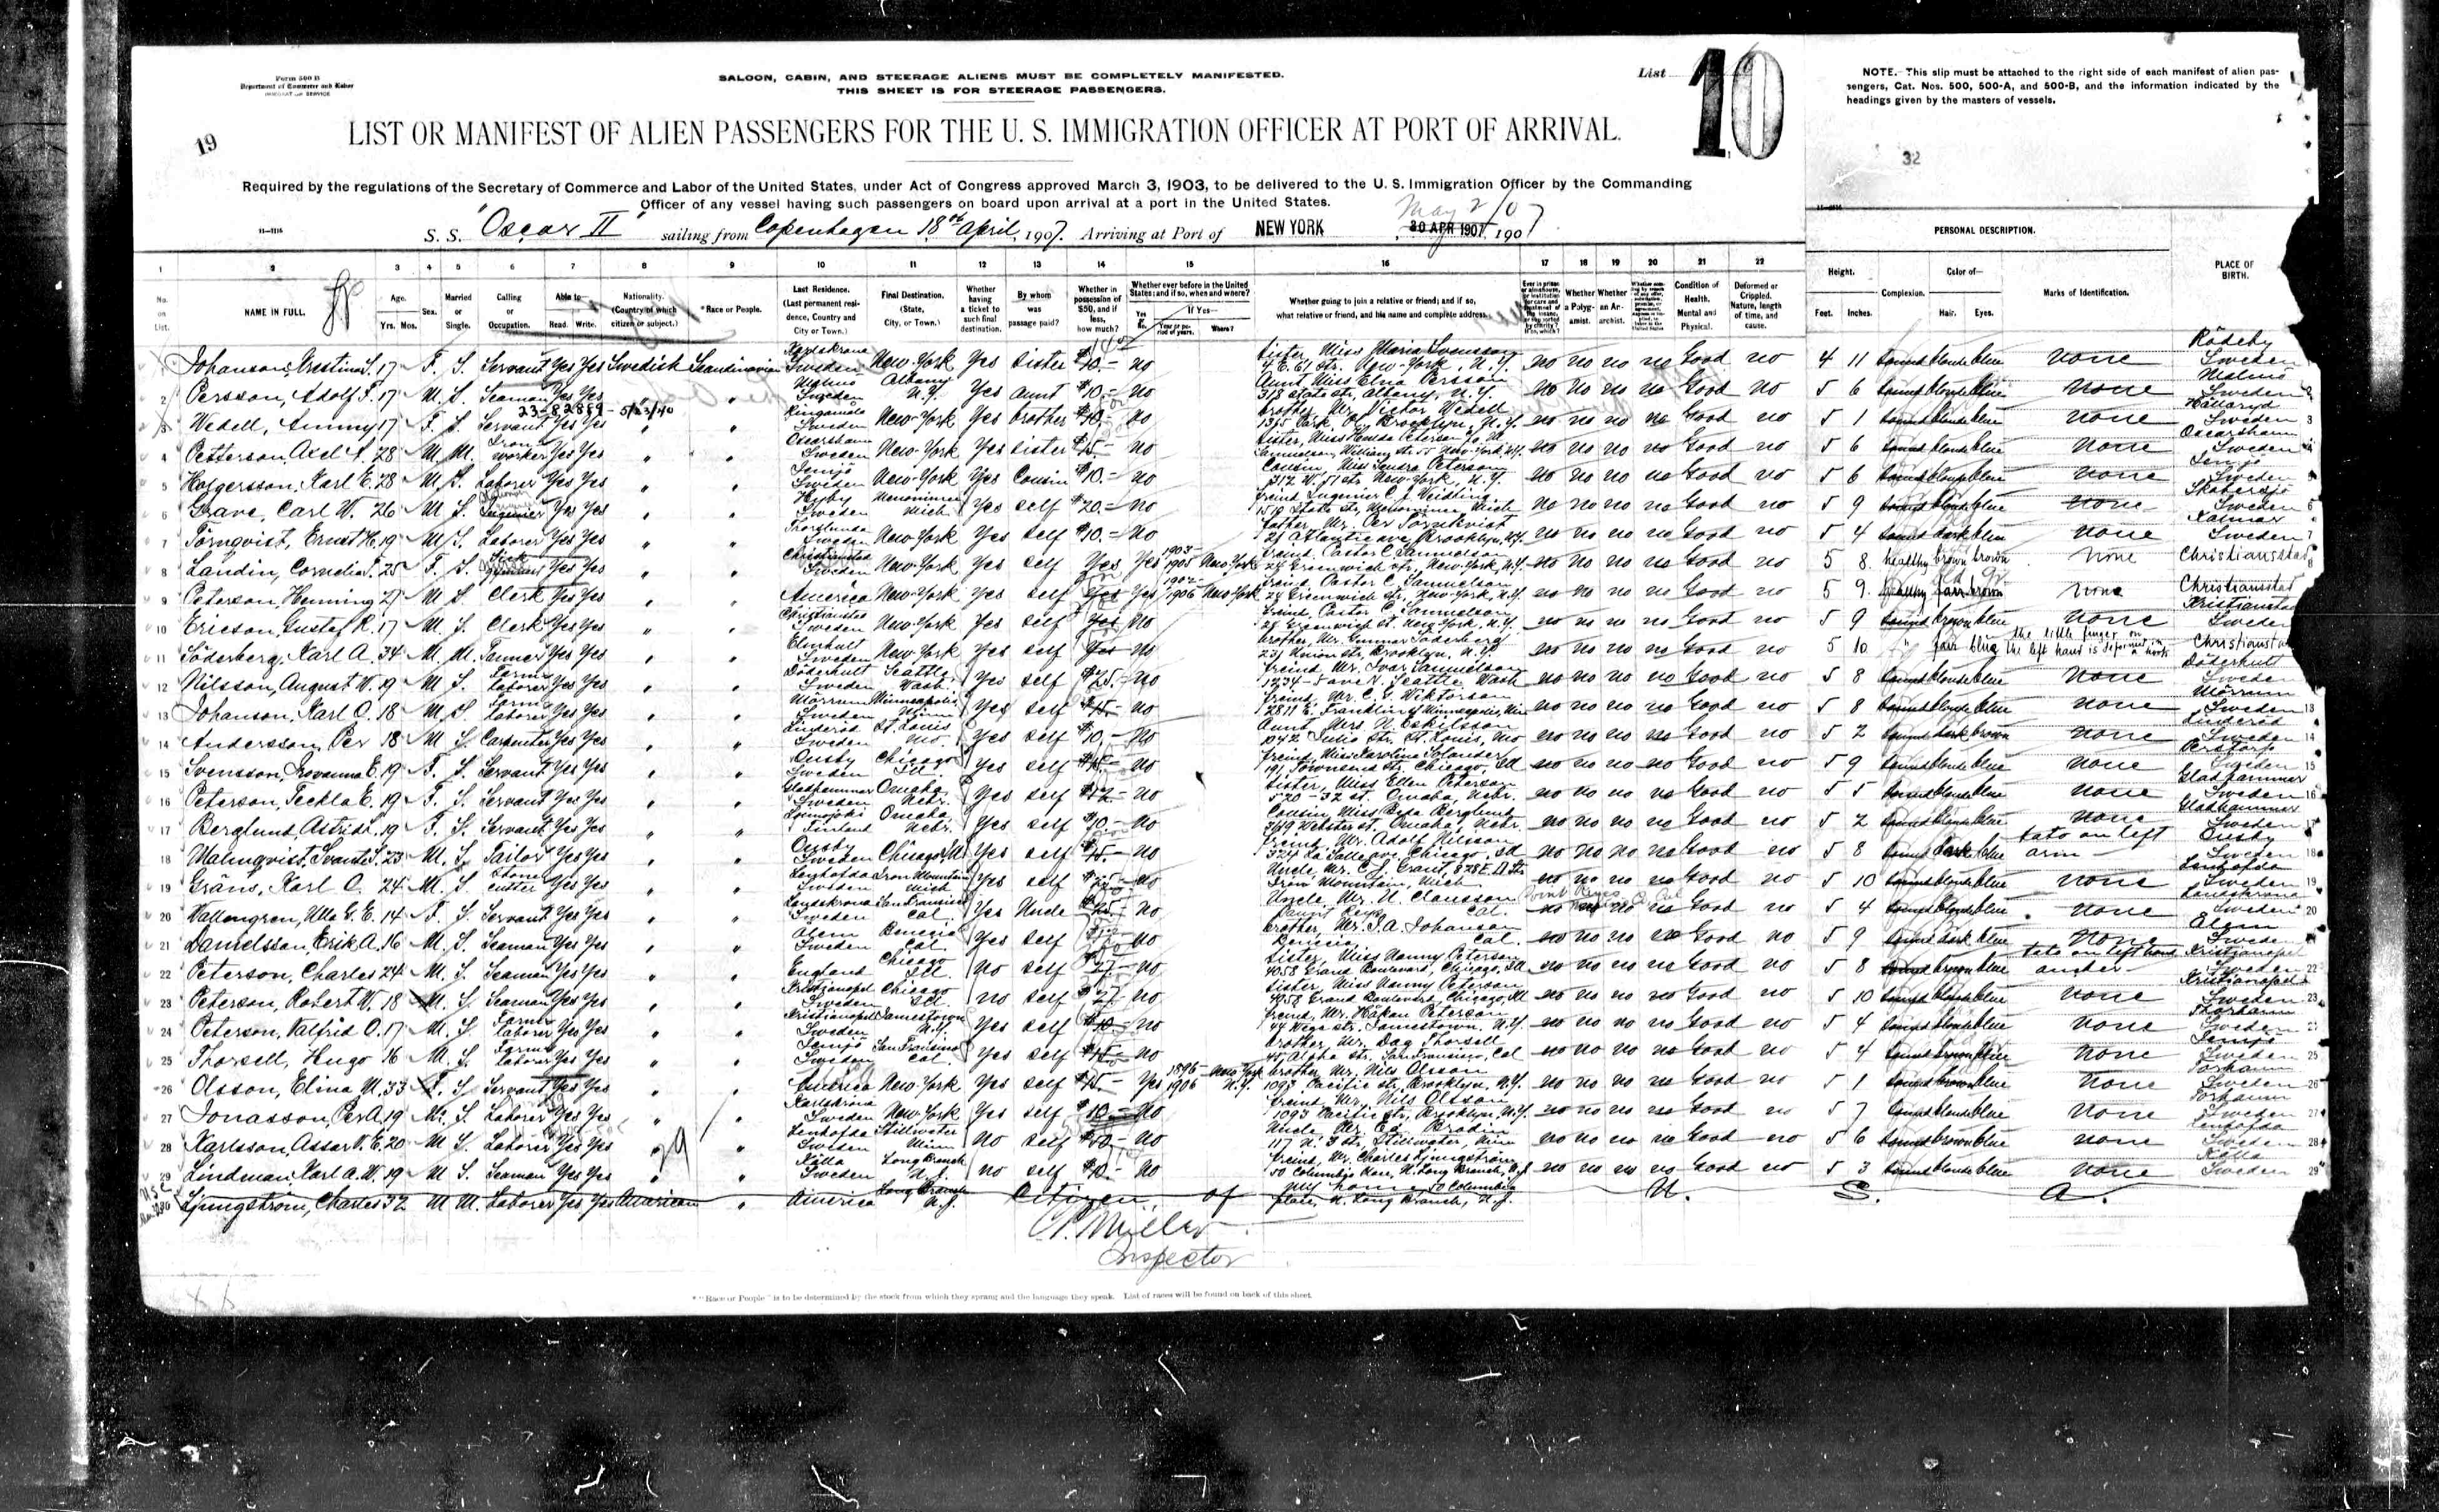 Form 500 B
Department of Commerce and Labor
IMMIGRATION SERVICE
SALOON, CABIN, AND STEERAGE ALIENS MUST BE COMPLETELY MANIFESTED.
THIS SHEET IS FOR STEERAGE PASSENGERS.
List 10
NOTE.—This slip must be attached to the right side of each manifest of alien pas-
sengers, Cat. Nos. 500, 500-A, and 500-B, and the information indicated by the
headings given by the masters of vessels.
19
LIST OR MANIFEST OF ALIEN PASSENGERS FOR THE U. S. IMMIGRATION OFFICER AT PORT OF ARRIVAL.
32
Required by the regulations of the Secretary of Commerce and Labor of the United States, under Act of Congress approved March 3, 1903, to be delivered to the U. S. Immigration Officer by the Commanding
Officer of any vessel having such passengers on board upon arrival at a port in the United States.
S. S. "Oscar II" sailing from Copenhagen 18th April, 1907. Arriving at Port of NEW YORK 30 APR 1907, 1907
May 2/07
PERSONAL DESCRIPTION.
1 2 3 4 5 6 7 8 9 10 11 12 13 14 15 16 17 18 19 20 21 22
No. on List. NAME IN FULL. Age. Yrs. Mos. Sex. Married or Single. Calling or Occupation. Able to— Read. Write. Nationality. (Country of which citizen or subject.) *Race or People. Last Residence. (Last permanent residence, Country and City or Town.) Final Destination. (State, City, or Town.) Whether having a ticket to such final destination. By whom was passage paid? Whether in possession of $50, and if less, how much? Whether ever before in the United States; and if so, when and where? Yes or No. If Yes— Year or period of years. Where? Whether going to join a relative or friend; and if so, what relative or friend, and his name and complete address. Whether a Polygamist. Whether an Anarchist. Condition of Health, Mental and Physical. Deformed or Crippled. Nature, length of time, and cause. Height. Feet. Inches. Complexion. Color of— Hair. Eyes. Marks of Identification. PLACE OF BIRTH.
Johanson, Kristina S. 17 F. S. Servant Yes Yes Swedish Scandinavian Karlskrona Sweden New-York Yes sister $10.- no Sister, Miss Maria Svensson 4 E. 61 str. New-York, N.Y. no no no no Good no 4 11 blonde blue none Rödeby Sweden
2 Persson, Adolf F. 17 M. S. Seaman Yes Yes " " Malmö Sweden Albany N.Y. Yes aunt $10.- no Aunt Miss Elna Persson 318 State str, Albany, N.Y. no no no no Good no 5 6 blonde blue none Malmö Sweden
23-82889 - 5/23/40
3 Wedell, Ammy 17 F. S. Servant Yes Yes " " Ringamåla Sweden New-York Yes brother no brother Mr. Victor Wedell 1375 Park Brooklyn, N.Y. no no no no Good no 5 1 blonde blue none Hallaryd Sweden
4 Petterson, Axel 28 M. M. Iron worker Yes Yes " " Oscarshamn Sweden New-York Yes sister $15.- no Sister, Miss Hulda Peterson William str New-York N.Y. no no no no Good no 5 6 blonde blue none Oscarshamn Sweden
5 Holgersson, Karl E. 28 M. S. Laborer Yes Yes " " Jemjö Sweden New-York Yes Cousin $10.- no Cousin, Miss Peterson New-York, N.Y. no no no no Good no 5 6 blonde blue none Jemjö Sweden
6 Grave, Carl W. 26 M S. Yes Yes " " Hyby Sweden Menominee Mich Yes self $20.- no friend Weidling Menominee, Mich no no no no Good no 5 9 blonde blue none Skabersjö Sweden
7 Törnqvist, Ernst H. 19 M. S. Laborer Yes Yes " " Sweden New-York Yes self $10.- no father, Mr. Per Törnkvist 21 Atlantic ave Brooklyn, N.Y. no no no no Good no 5 4 dark blue none Kalmar Sweden
8 Landin, Cornelia F. 25 F. S. " " Christianstad Sweden New-York Yes self Yes Yes 1903 1905 New York friend, Pastor C. Samuelson 24 Greenwich str., New-York, N.Y. no no no no Good no 5 8 healthy brown brown none Christianstad
9 Peterson, Henning 27 M S Clerk Yes Yes " " America New-York Yes self Yes Yes 1902- 1906 New York friend, Pastor C. Samuelson 24 Greenwich str., New-York, N.Y. no no no no Good no 5 9. healthy fair brown none Christianstad
10 Ericson, Gustaf R. 17 M. S. Clerk Yes Yes " " Christianstad Sweden New-York Yes self Yes no friend, Pastor C. Samuelson Greenwich st. New-York, N.Y. no no no no Good no 5 9 brown blue none Kristianstad Sweden
11 Söderberg, Karl A. 34 M. M. Tanner Yes Yes " " Elmhult Sweden New-York Yes self Yes no brother Mr. Gunnar Söderberg 231 Union str, Brooklyn, N.Y. no no no no Good no 5 10 " fair blue the little finger on the left hand is deformed Christianstad
12 Nilsson, August W. 19 M S. Farm laborer Yes Yes " " Döderhult Sweden Seattle, Wash. Yes self $25.- no friend, Mr. Ivar Samuelson Seattle Wash no no no no Good no 5 8 blonde blue none Döderhult Sweden
13 Johanson, Karl O. 18 M. S. Farm laborer Yes Yes " " Mörrum Sweden Minneapolis Minn Yes self $15.- no friend, Mr. C. G. Wiktorson 2811 E. Franklin Minneapolis, Min no no no no Good no 5 8 blonde blue none Mörrum Sweden 13
14 Andersson, Per 18 M S. Carpenter Yes Yes " " Linderöd Sweden St. Louis Mo. Yes self $10.- no Aunt Mrs. N. Eskilsson 1042 Julia str. St. Louis, Mo no no no no Good no 5 2 dark brown none Linderöd Sweden 14
15 Svensson, Jrovanna E. 19 F. S. Servant Yes Yes " " Ousby Sweden Chicago Ill. Yes self $15.- no friend, Miss Karolina Solander 191 Townsend str. Chicago, Ill no no no no Good no 5 9 blonde blue none Perstorp Sweden 15
16 Peterson, Teckla E. 19 F. S. Servant Yes Yes " " Gladhammer Sweden Omaha Nebr. Yes self $12- no Sister, Miss Ellen Peterson 520 - 32 st. Omaha, Nebr. no no no no Good no 5 5 blonde blue none Gladhammer Sweden 16
17 Berglund, Astrid 19 F. S. Servant Yes Yes " " Finland Omaha Nebr. Yes self $10- no Cousin Miss Beda Berglund 3419 Webster st. Omaha, Nebr no no no no Good no 5 2 blonde blue none Gladhammer Sweden
18 Malmqvist, Svante S. 23 M. S. Tailor Yes Yes " " Ousby Sweden Chicago Ill Yes self $15.- no friend, Mr. Adolf Nilsson 324 La Salle ave, Chicago, Ill no no no no Good no 5 8 dark blue tato on left arm Ousby Sweden 18
19 Gräns, Karl O. 24 M. S Stone cutter Yes Yes " " Lenhofda Sweden Iron Mountain Mich Yes self $25.- no Uncle, Mr. C. J. Grant, 825 E. D str Iron Mountain, Mich no no no no Good no 5 10 blonde blue none Lenhofda Sweden 19
20 Wallengren, Ulla G. E. 14 F. S. Servant Yes Yes " " Landskrona Sweden San Francisco Cal. Yes Uncle $25 no Uncle, Mr. N. Clausson Point Reyes Cal. no no no no Good no 5 4 blonde blue none Landskrona Sweden 20
21 Danielsson, Erik A. 16 M. S. Seaman Yes Yes " " Ålem Sweden Benecia Cal Yes self no brother, Mr. J. A. Johanson Benecia Cal. no no no no Good no 5 9 dark blue none Ålem Swede
22 Peterson, Charles 24 M. S. Seaman Yes Yes " " England Chicago Ill. No self $27- no Sister, Miss Nanny Peterson 4058 Grand Boulevard, Chicago, Ill no no no no Good no 5 8 brown blue tato on left hand anchor Kristianopel Sweden 22
23 Peterson, Robert W. 18 M. S. Seaman Yes Yes " " Kristianopel Sweden Chicago Ill. no self $27- no Sister Miss Nanny Peterson 4058 Grand Boulevard, Chicago, Ill no no no no Good no 5 10 blonde blue none Kristianopel Sweden 23
24 Peterson, Valfrid O. 17 M. S Farm laborer Yes Yes " " Kristianopel Sweden Jamestown N.Y. Yes self $10.- no friend, Mr. Håkan Peterson 44 Wega str. Jamestown, N.Y. no no no no Good no 5 4 blonde blue none Thorhamn Sweden
25 Thorsell, Hugo 16 M. S. Farm laborer Yes Yes " " Jemjö Sweden San Francisco Cal. Yes self $15- no brother, Mr. Dag Thorsell 45, Alpha str. San Francisco, Cal no no no no Good no 5 4 brown blue none Jemjö Sweden 25
26 Olsson, Elina M. 33 F. S Servant Yes Yes " " America New-York Yes self $15- Yes 1896- 1906 New York N.Y. brother Mr. Nils Olsson 1093 Pacific str, Brooklyn, N.Y. no no no no Good no 5 1 brown blue none Torhamn Sweden 26
27 Jonasson, Per A. 19 M. S. Laborer Yes Yes " " Karlskrona Sweden New-York Yes self $10- no friend, Mr. Nils Olsson 1093 Pacific str, Brooklyn, N.Y. no no no no Good no 5 7 blonde blue none Torhamn Sweden 27
28 Karlsson, Assar V. E. 20 M S. Laborer Yes Yes " " Lenhofda Sweden Stillwater Minn No self $50- no Uncle Mr. Ed. Brodin 117 N. 3 str., Stillwater, Minn no no no no Good no 5 6 brown blue none Lenhofda Sweden 28
29
29 Lindman, Karl A. W. 19 M S. Seaman Yes Yes " " Källa Sweden Long Branch N.J. no self $10.- no friend, Mr. Charles Ljungström 50 Columbia Place, N. Long Branch, N.J. no no no no Good no 5 3 blonde blue none Källa Sweden 29
U.S.C. Ljungström, Charles 32 M M. Laborer Yes Yes American " America Long Branch N.J. Citizen of my home 50 Columbia place, N. Long Branch, N.J. U. S. A.
Miller
Inspector
* "Race or People" is to be determined by the stock from which they sprang and the language they speak. List of races will be found on back of this sheet.